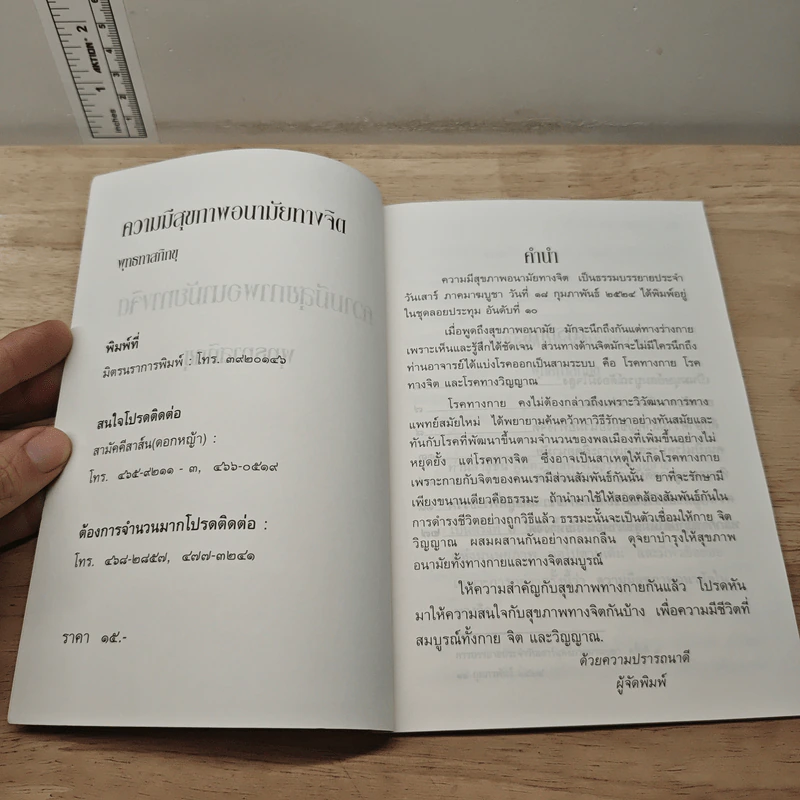 ความมีสุขภาพอนามัยทางจิต
พุทธทาสภิกขุ
พิมพ์ที่
มิตรนราการพิมพ์ : โทร. ๓๙๒๐๑๔๖
สนใจโปรดติดต่อ
สามัคคีสาส์น(ดอกหญ้า) :
โทร. ๔๖๕-๙๒๑๑ - ๓, ๔๖๖-๐๕๑๙
ต้องการจำนวนมากโปรดติดต่อ :
โทร. ๔๖๘-๒๘๕๗, ๔๗๗-๓๒๔๑
ราคา ๑๕.-
คำนำ
ความมีสุขภาพอนามัยทางจิต เป็นธรรมบรรยายประจำ
วันเสาร์ ภาคมาฆบูชา วันที่ ๑๘ กุมภาพันธ์ ๒๕๒๔ ได้พิมพ์อยู่
ในชุดลอยปทุม อันดับที่ ๑๐
เมื่อพูดถึงสุขภาพอนามัย มักจะนึกถึงกันแต่ทางร่างกาย
เพราะเห็นและรู้สึกได้ชัดเจน ส่วนทางด้านจิตมักจะไม่มีใครนึกถึง
ท่านอาจารย์ได้แบ่งโรคออกเป็นสามระบบ คือ โรคทางกาย โรค
ทางจิต และโรคทางวิญญาณ
โรคทางกาย คงไม่ต้องกล่าวถึงเพราะวิวัฒนาการทาง
แพทย์สมัยใหม่ ได้พยายามค้นคว้าหาวิธีรักษาอย่างทันสมัยและ
ทันกับโรคที่พัฒนาขึ้นตามจำนวนของพลเมืองที่เพิ่มขึ้นอย่างไม่
หยุดยั้ง แต่โรคทางจิต ซึ่งอาจเป็นสาเหตุให้เกิดโรคทางกาย
เพราะกายกับจิตของคนเรามีส่วนสัมพันธ์กันนั้น ยาที่จะรักษามี
เพียงขนานเดียวคือธรรมะ ถ้านำมาใช้ให้สอดคล้องสัมพันธ์กันใน
การดำรงชีวิตอย่างถูกวิธีแล้ว ธรรมะนั้นจะเป็นตัวเชื่อมให้กาย จิต
วิญญาณ ผสมผสานกันอย่างกลมกลืน ดุจยาบำรุงให้สุขภาพ
อนามัยทั้งทางกายและทางจิตสมบูรณ์
ให้ความสำคัญกับสุขภาพทางกายกันแล้ว โปรดหัน
มาให้ความสนใจกับสุขภาพทางจิตกันบ้าง เพื่อความมีชีวิตที่
สมบูรณ์ทั้งกาย จิต และวิญญาณ.
ด้วยความปรารถนาดี
ผู้จัดพิมพ์